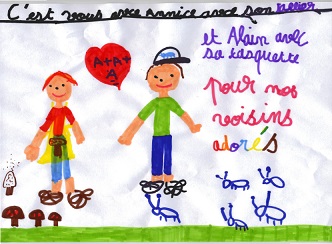 C'est vous avec annice avec son tablier
et Alain avec
sa casquette
pour nos
voisins
adorés
A+A+
A